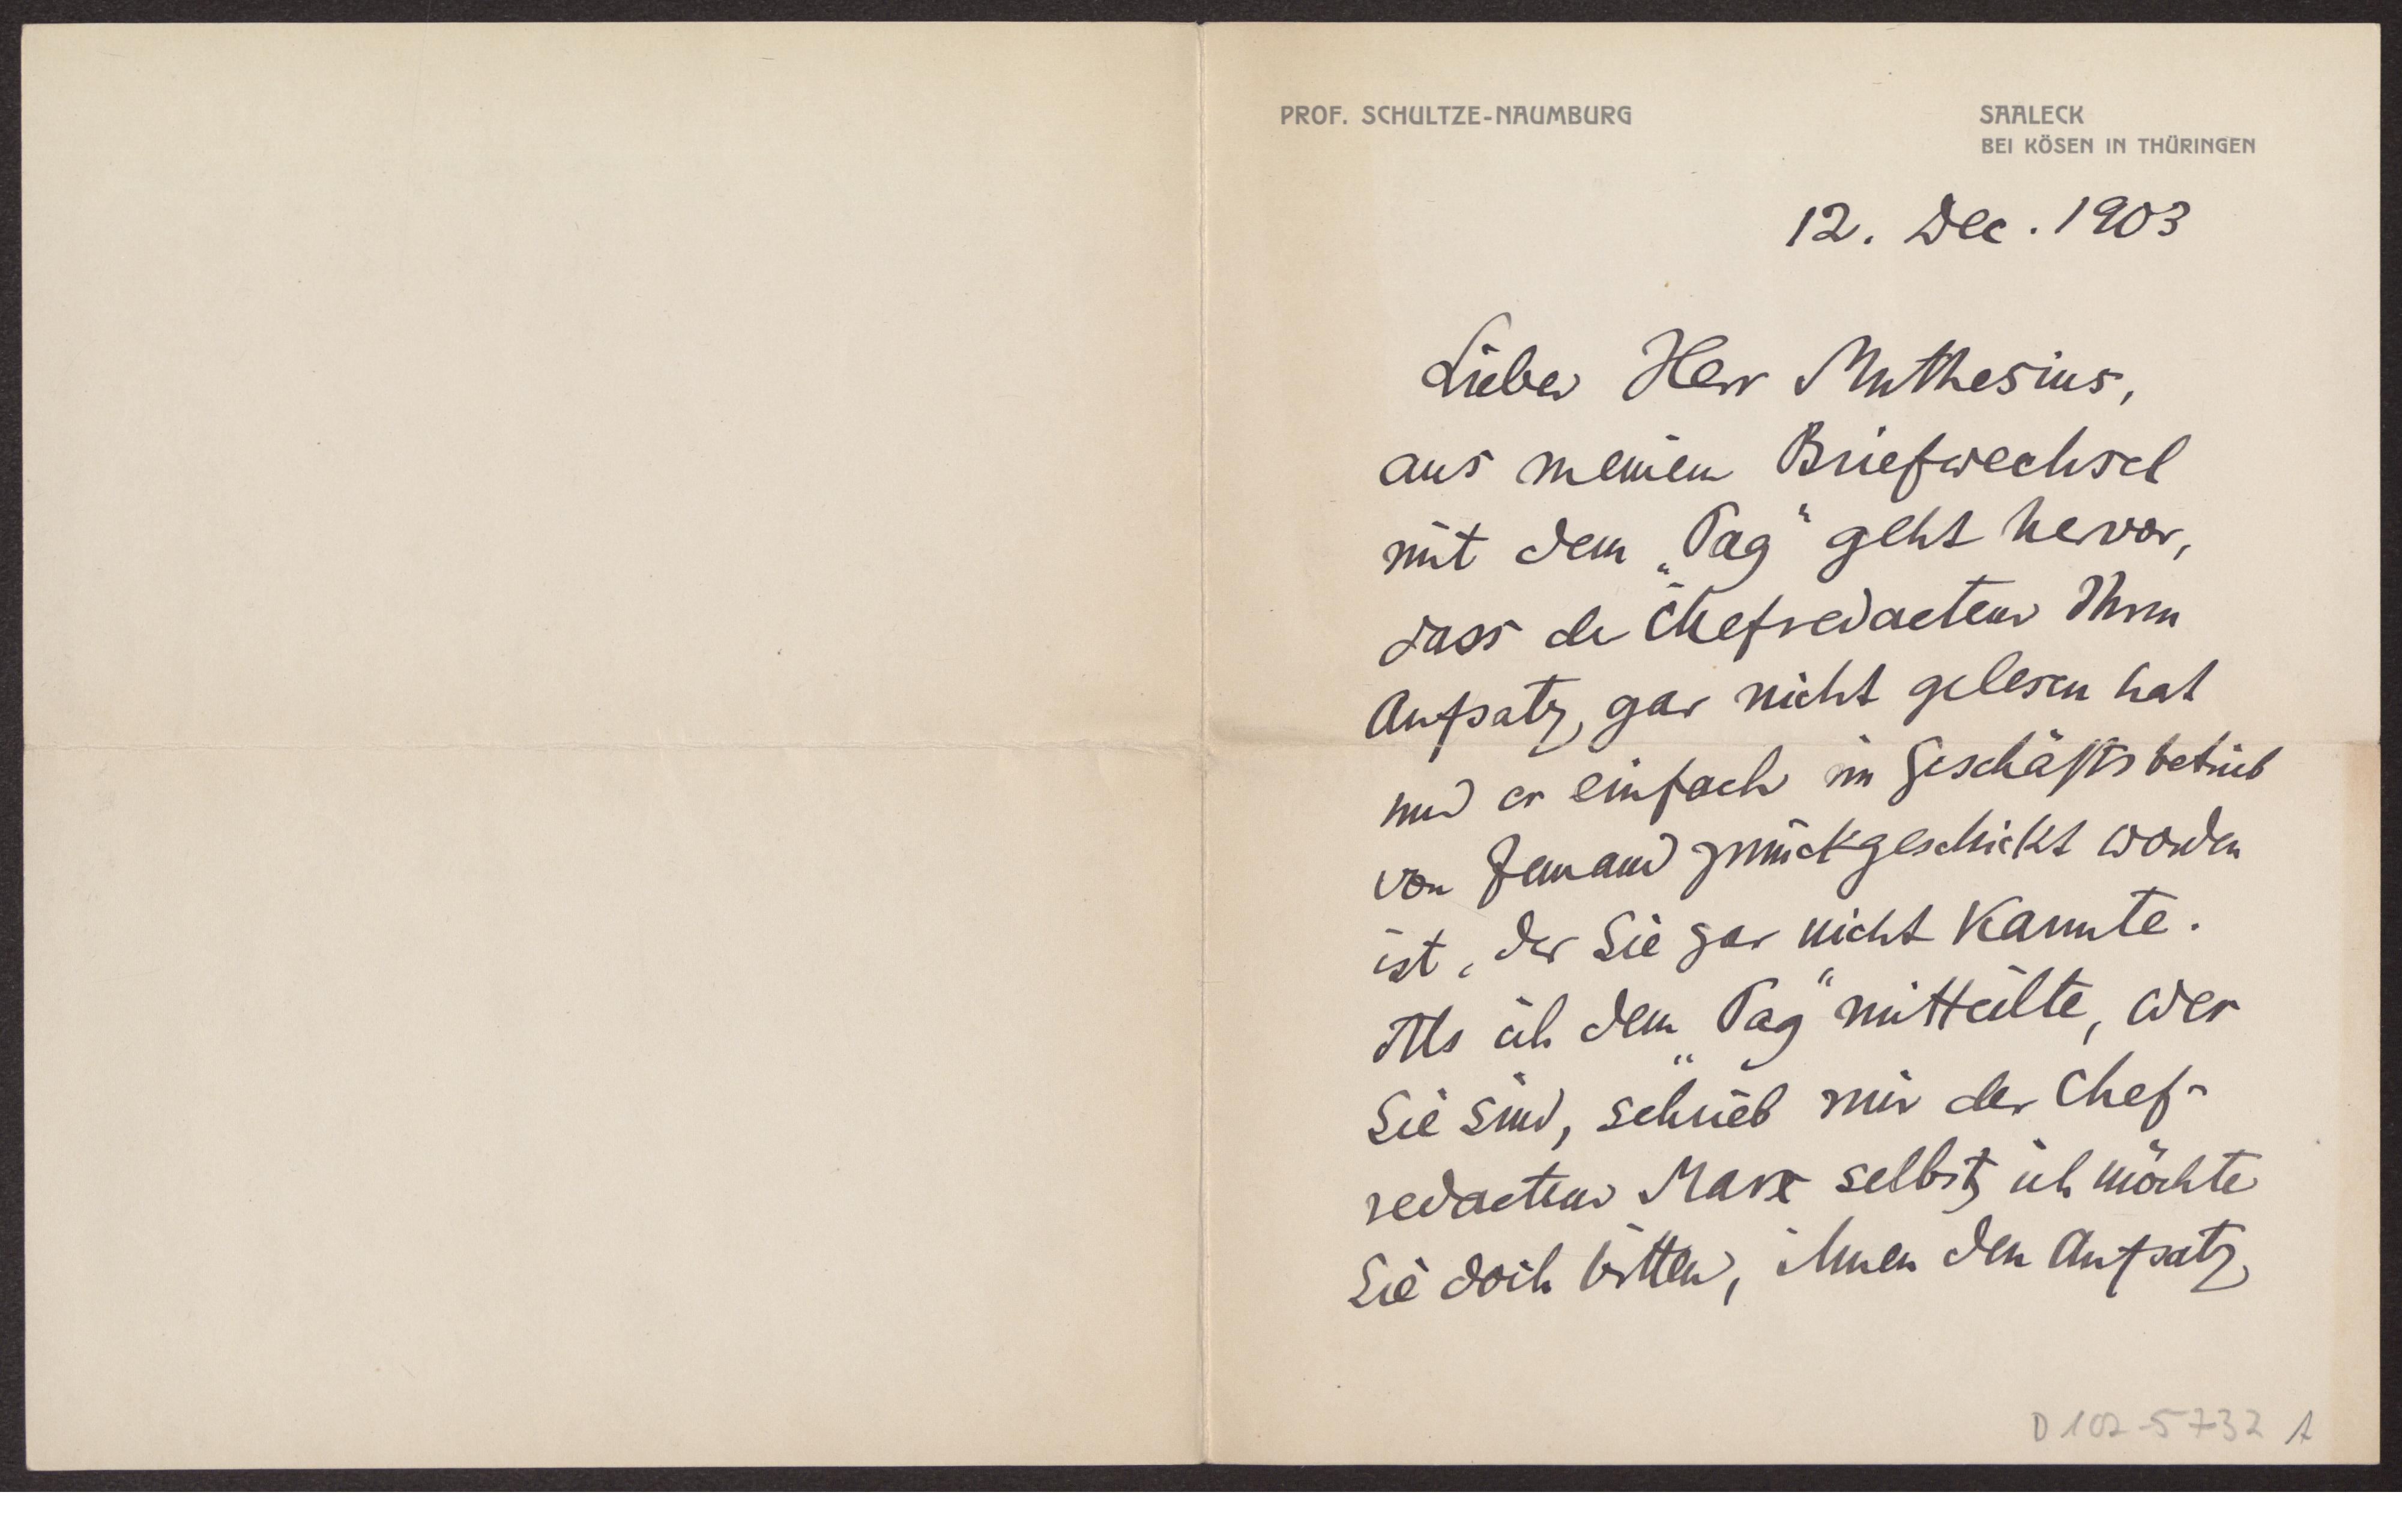 PROF. SCHULTZE-NAUMBURG
SAALECK
BEI KÖSEN IN THÜRINGEN
12. Dec. 1903
Lieber Herr Muthesius,
aus meinem Briefwechsel
mit dem „Tag“ geht hervor,
dass der Chefredacteur Ihren
Aufsatz gar nicht gelesen hat
und er einfach im Geschäftsbetrieb
von Jemand zurückgeschickt worden
ist, der Sie gar nicht kannte.
Als ich dem „Tag“ mitteilte, wer
Sie sind, schrieb mir der Chef-
redacteur Marx selbst, ich möchte
Sie doch bitten, ihnen den Aufsatz
D 102-5732 A